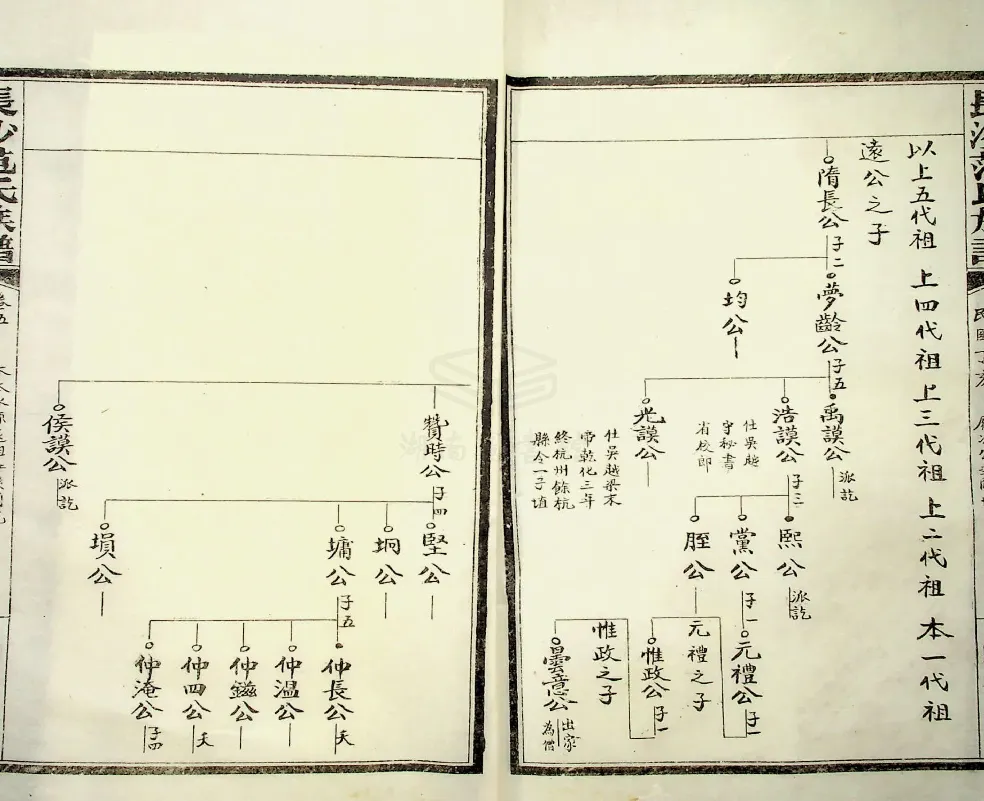 長沙范氏族譜
以上五代祖 上四代祖 上三代祖 上二代祖 本一代祖
遠公之子
隋長公 子二
夢齡公 子五
均公
禹謨公 派訖
浩謨公 子三
仕吳越
守秘書
省校郎
光謨公
仕吳越梁末
帝乾化三年
終杭州餘杭
縣令一子埴
熙公 派訖
黨公 子一
胵公
元禮公 子一
元禮之子
惟政公 子一
惟政之子
曇意公 出家
為僧
贊時公 子四
侯謨公 派訖
堅公
坰公
墉公 子五
塤公
仲長公 夭
仲温公
仲鎡公
仲四公 夭
仲淹公 子四
長沙范氏族譜
卷五